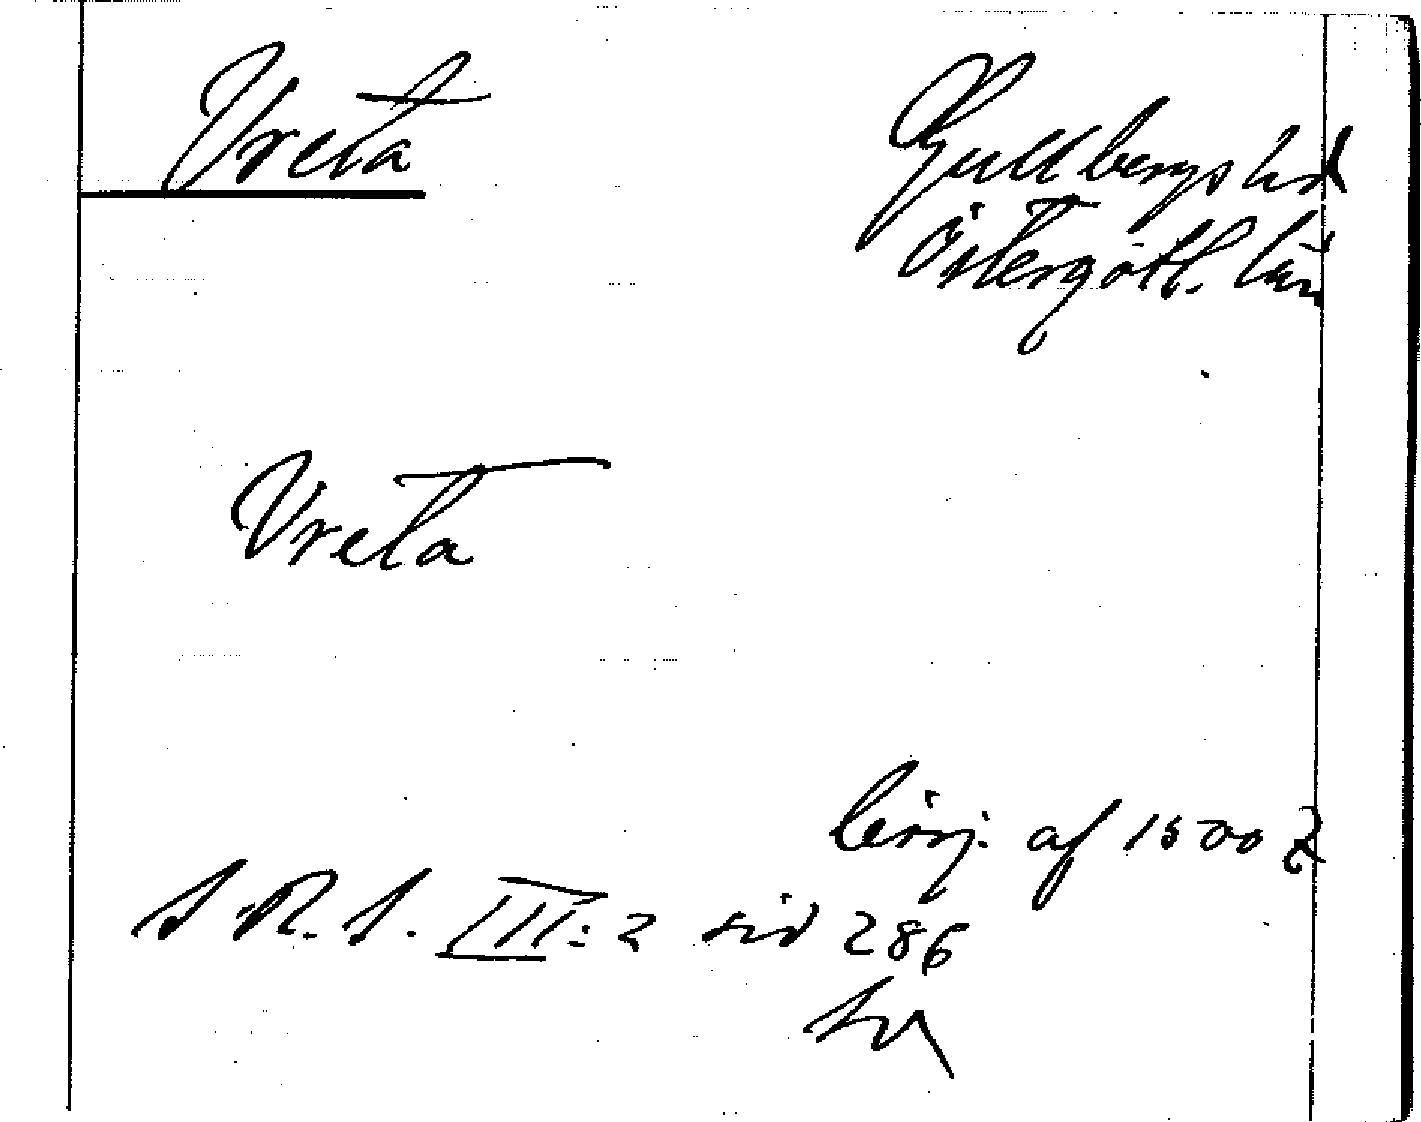 Vreta
Gullbergs hd
Östergötl. län
Vreta
börj. af 1500 t
S. R. S. III: 2 sid 286